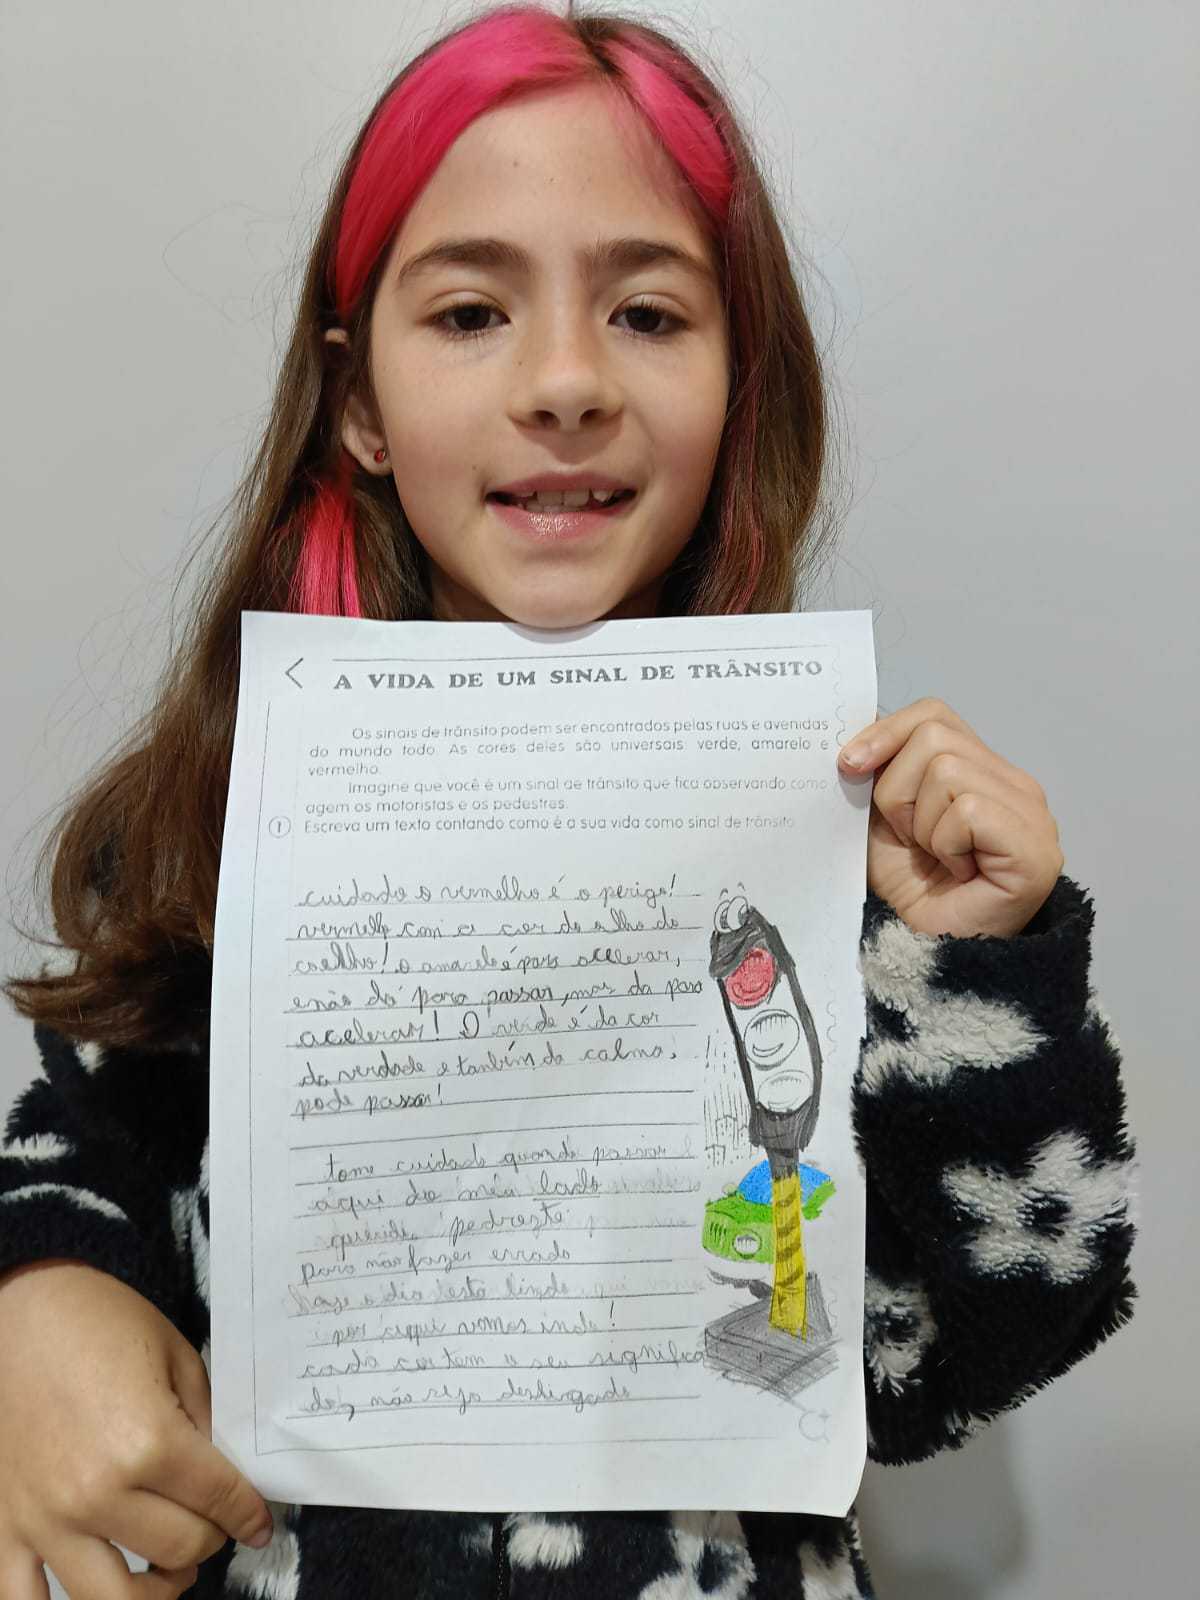 A VIDA DE UM SINAL DE TRÂNSITO
Os sinais de trânsito podem ser encontrados pelas ruas e avenidas
do mundo todo. As cores deles são universais verde, amarelo e
vermelho.
Imagine que você é um sinal de trânsito que fica observando como
agem os motoristas e os pedestres.
1 Escreva um texto contando como é a sua vida como sinal de trânsito
cuidado o vermelho é o perigo!
vermelho com a cor do olho do
coelho! o amarelo é para acelerar,
e não dá para passar, mas da para
acelerar! O verde é da cor
da verdade e tanbím da calma,
pode passar!
tome cuidado quando passar
aqui do meu lado
querido pedrezte
para não fazer errado
o dia esta lindo
por aqui vamos indo!
cada cor tem o seu significa
do, não seja desligado